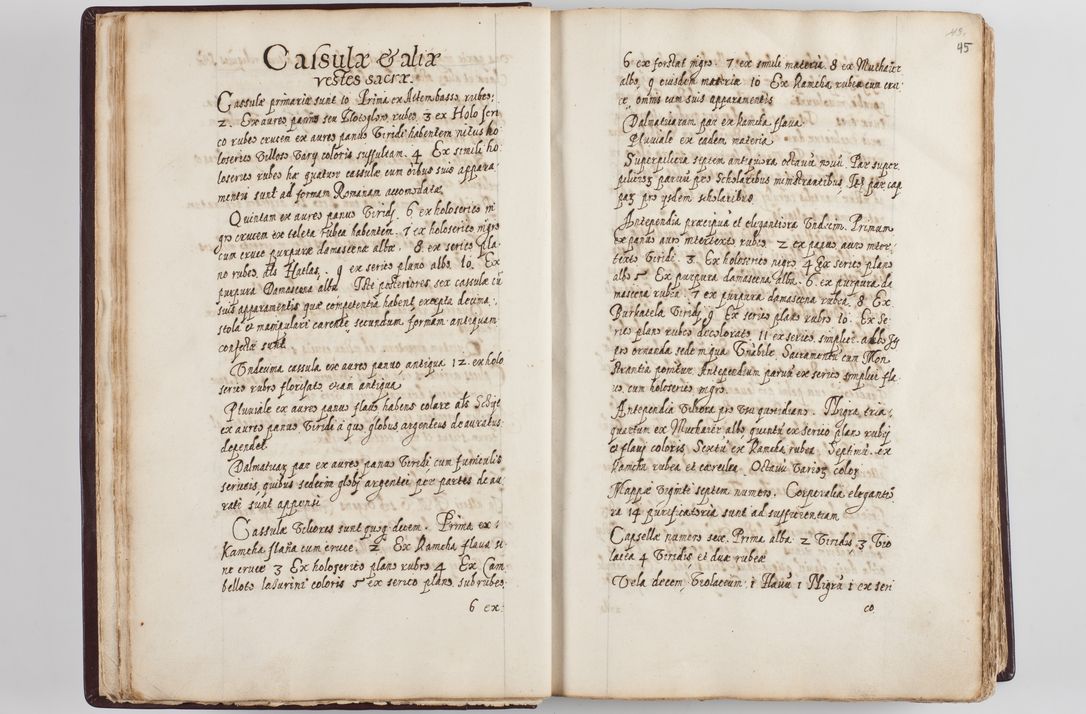 Cassulæ & aliæ
vestes sacræ.
Cassulæ primariæ sunt 10 Prima ex Altembasso rubeo,
2. Ex aureo panno seu Zlotogłow rubeo 3 ex Holo seri
co rubeo crucem ex aureo panno Viridi habentem
loserico Villoso Varij coloris suffultam. 4 Ex simili ho
loserico rubeo hæ quatuor cassulæ cum oibus suis appara
mentis sunt ad formam Romanam accomodatæ
Quintam ex aureo panno Viridj. 6 ex holoserico ni
gro crucem ex teleta rubea habentem. 7 ex holoserico nigro
cum cruce purpuræ damascenæ albæ. 8 ex serico pla
no rubeo als Hatlas. 9 ex serico plano albo 10. Ex
purpura Damascena alba. Istæ posteriores sex cassulæ cũ
suis apparamentis quæ competentia habent excepta decima,
stola et manipulari carente secundum formam antiquam
confectæ sunt
Vndecima cassula ex aureo panno antiqua 12. ex holo
serico rubro florisato etiam antiqua
Pluviale ex aureo panno flavo habens colare als
ex aureo panno Viridi à quo globus argenteus deauratus
dependet
Dalmaticar par ex aureo panno Viridi cum funiculis
sericeis, quibus sedecim globj argentei per partes deau
rati sunt appensi
Cassulæ Viliores sunt decem. Prima ex
Kamcha flava cum cruce. 2 Ex Kamcha flava si
ne cruce 3 Ex holoserico plano rubro 4 Ex Cam
belloto ladurini coloris 5 ex serico plano subrubeo
6 ex
45
6 ex forstat nigro. 7 ex simili materia 8 ex Muchaier
albo, 9 eiusdem materiæ 10 Ex Kamcha rubea cum cru
ce, omnes cum suis apparamentis
Dalmaticarum par ex kamcha flava
Pluviale ex eadem materia
Superpilicia septem antiquiora octavũ novũ. Par super
pilicioꝝ parvũ pro Scholaribus ministrantibus par cap
paꝝ pro ijsdem scholaribus
Antependia præcipua et elegantiora Vndecim. Primum
ex panno auro intertexto rubeo 2 ex panno auro inter,
texto Viridi. 3 Ex holoserico nigro 4 Ex serico plano
albo 5 Ex purpura damascena alba. 6. ex purpura da
mascena rubea. 7 ex purpura damascena rubea. 8 Ex
Burkatela Viridj 9 Ex serico plano rubro 10. Ex Se,
rico plano rubeo decolorato 11 ex serico simplici albo
pro ornanda sede in qua Vnrãbile Sacramentũ cum Mon
strantia ponitur Antependium parvũ ex serico simplici fla
vo, cum holoserico nigro.
Antependia Viliora pro Vsu quotidiano. Nigra tria,
quartum ex Muchaier albo quintũ ex serico plano rubij
et flavi coloris Sextũ ex Kamcha rubea Septimũ ex
kamcha rubea et cærulea. Octavũ Varioꝝ coloꝝ
Mappæ Viginti septem numero. Corporalia elegantio
ra 14 purificatoria sunt ad sufficientiam
Capsellæ numero sex. Prima alba 2 Viridis 3 Vio
lacea 4 Viridis et duæ rubeæ
Vela decem, Violaceum 1 flavũ 1 Nigrũ 1 ex seri
co